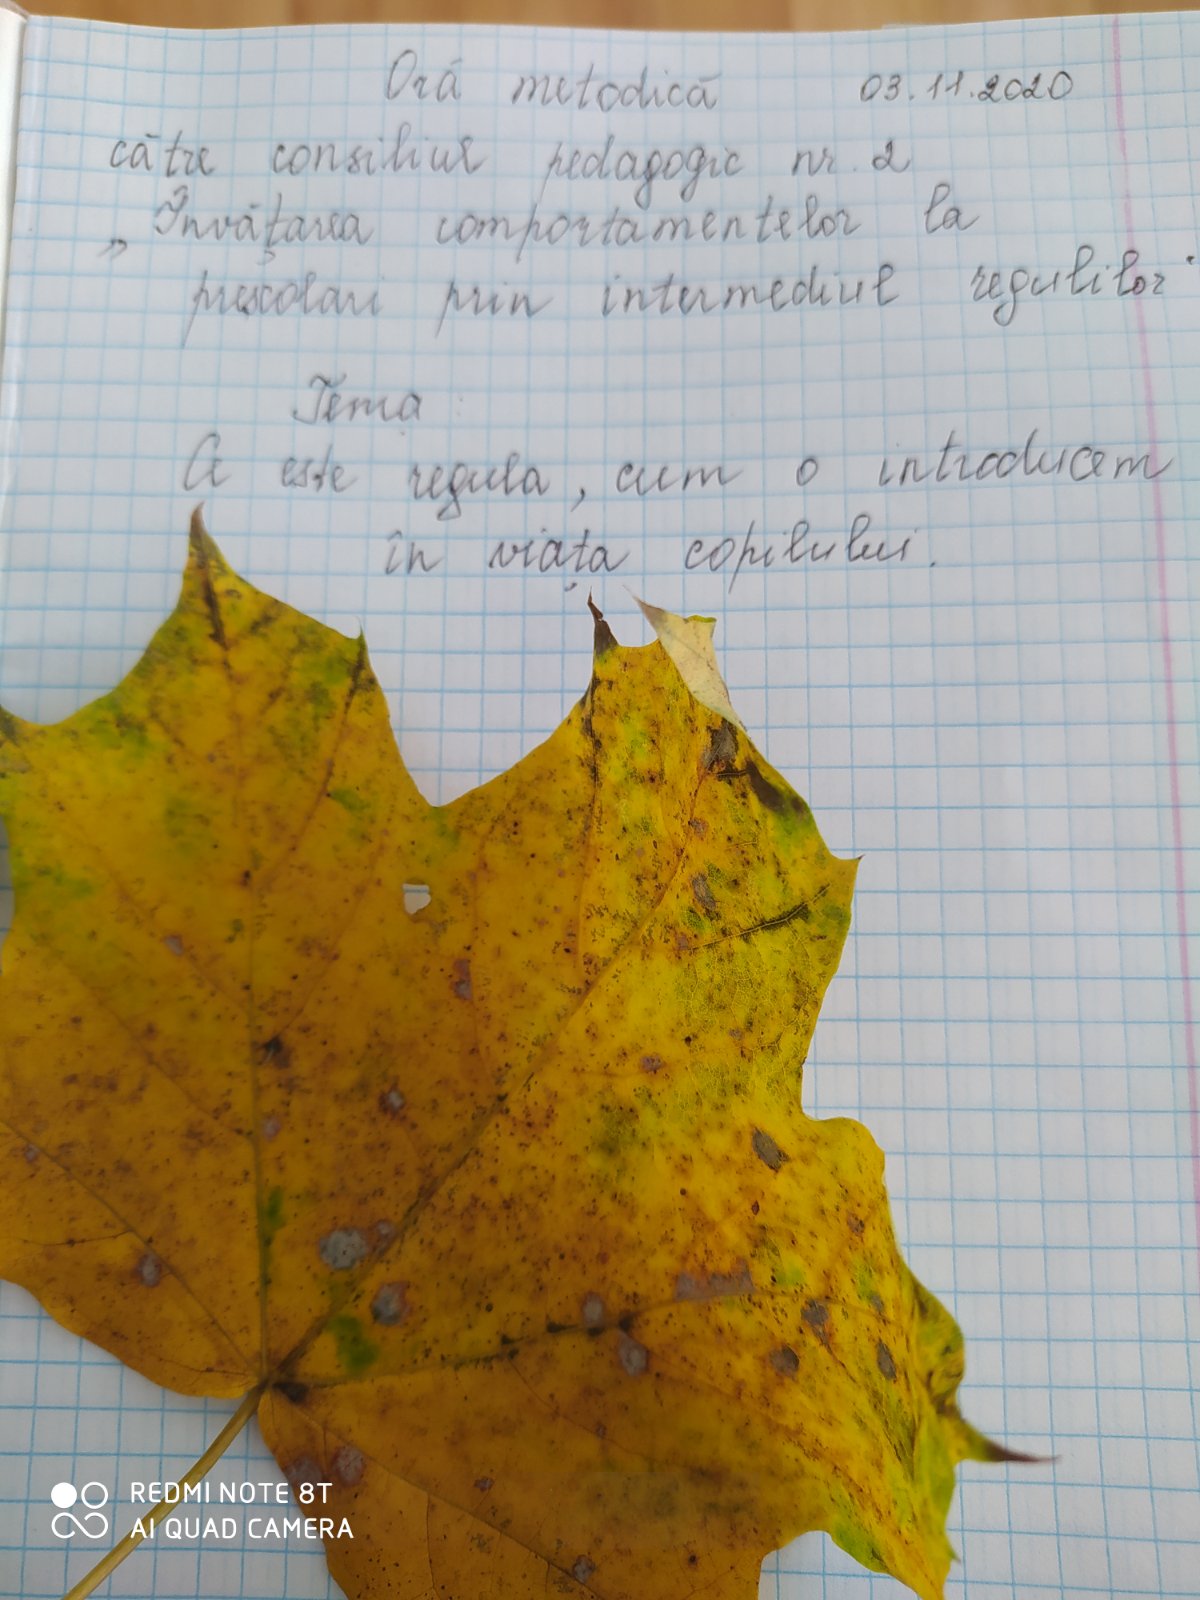 Oră metodică 03.11.2020
către consiliul pedagogic nr. 2
„Învățarea comportamentelor la
preșcolari prin intermediul regulilor"
Tema:
Ce este regula, cum o introducem
în viața copilului.
REDMI NOTE 8T
AI QUAD CAMERA